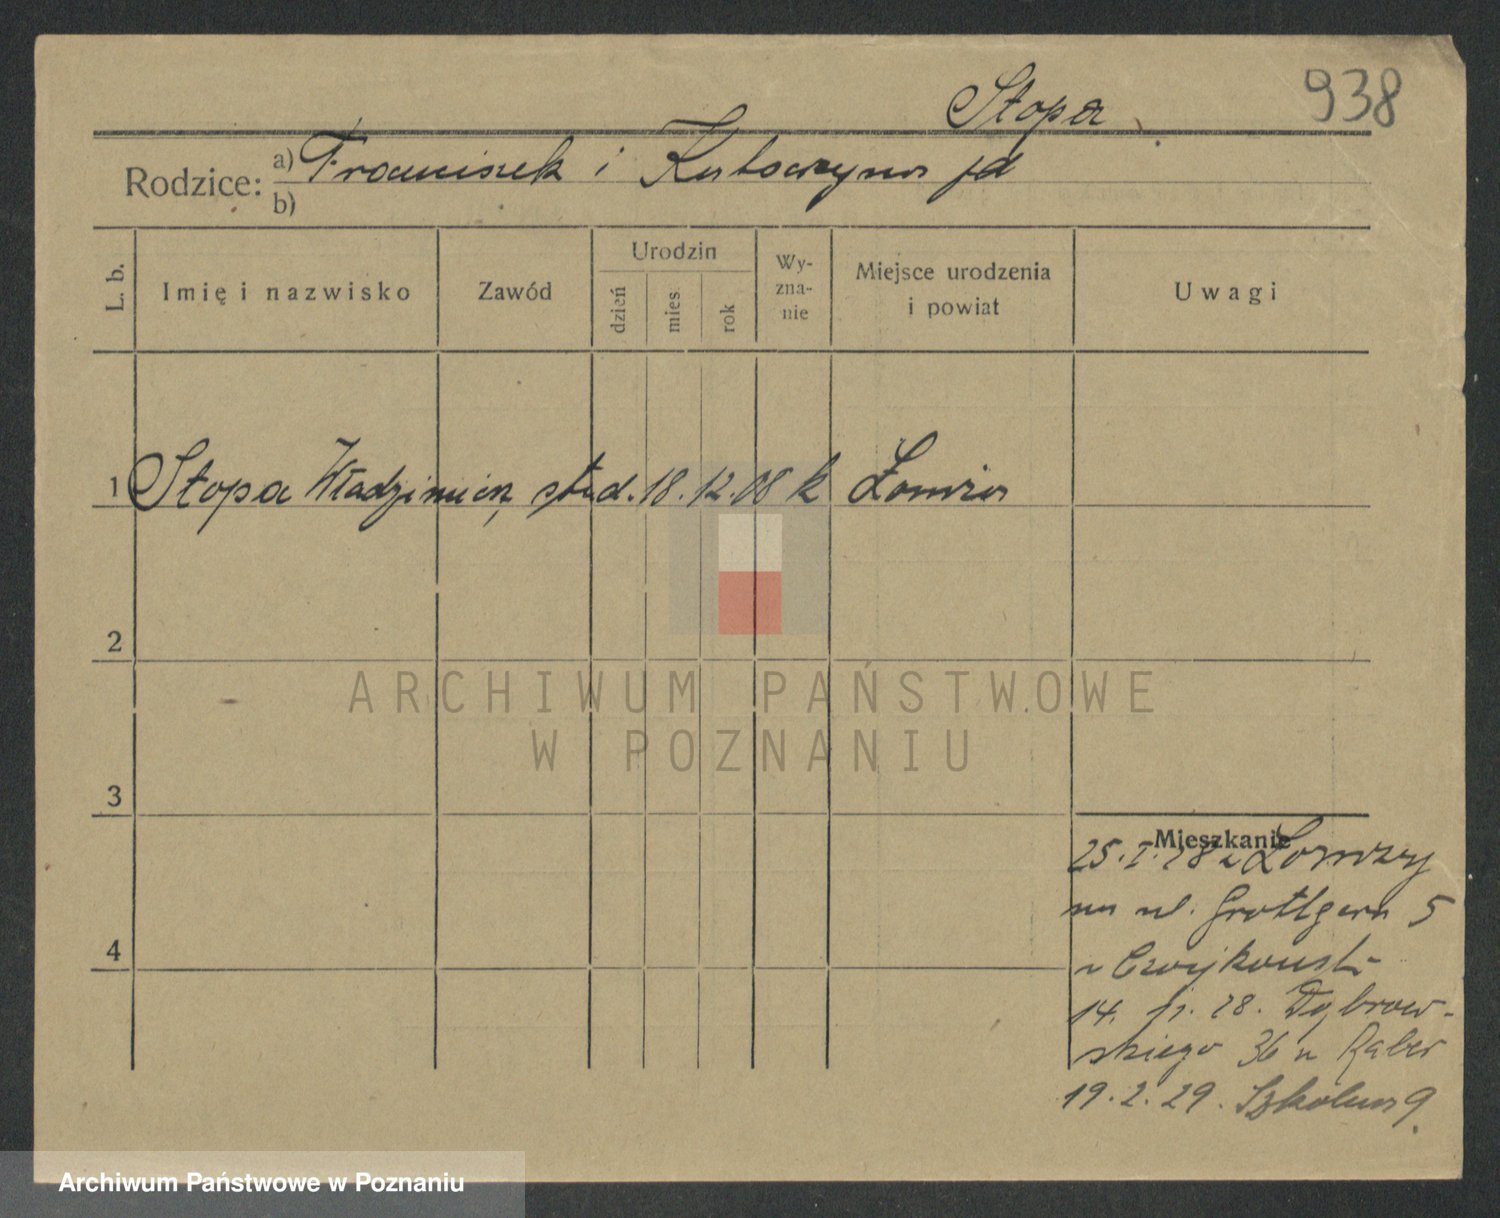 Stopa
938
Rodzice:
a) Franciszek i Katarzyna jd
b)
L. b.
Imię i nazwisko
Zawód
Urodzin
dzień
mies
rok
Wy-
zna-
nie
Miejsce urodzenia
i powiat
Uwagi
1 Stopa Władzimierz, stud. 18. 12. 08 k Łomża
2
3
4
ARCHIWUM PAŃSTWOWE
W POZNANIU
Mieszkanie
25. I. 28 z Łomży
na ul. Grottgera 5
14. 28. Dąbrow-
skiego 36 u
19. 2. 29. Szkolna 9.
Archiwum Państwowe w Poznaniu